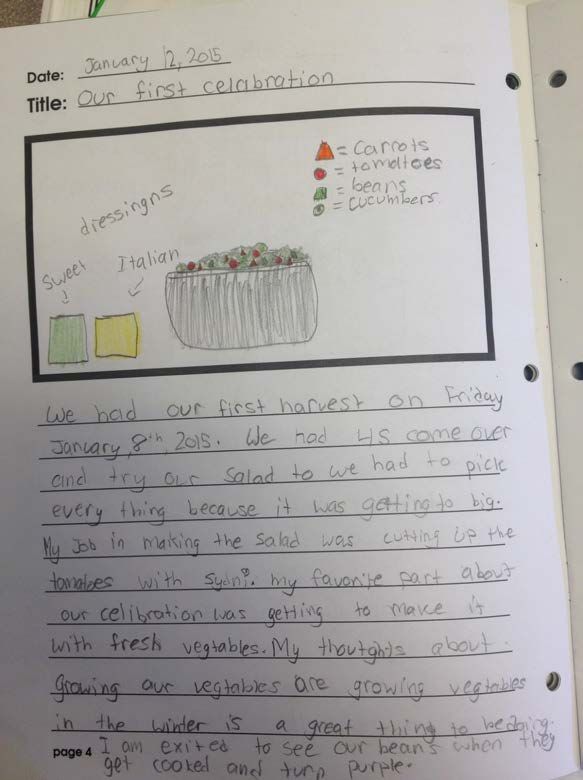 Date: January 12, 2015
Title: Our first celabration
= carrots
= tomaltoes
= beans
= cucumbers
dressingns
Sweet
Italian
We had our first harvest on Friday
January, 8th, 2015. We had 4S come over
and try our salad to we had to pick
every thing because it was getting to big.
My Job in making the Salad was cutting up the
tomatoes with Sydni. my favorite part about
our celibration was getting to make it
with fresh vegtables. My thoughts about
Growing our vegtables are growing vegtables
in the winter is a great thing to be doing.
page 4 I am exited to see our beans when they
get cooked and turn purple.